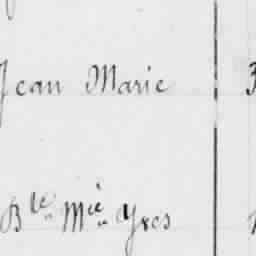 Jean Marie
Ble Mie Yves